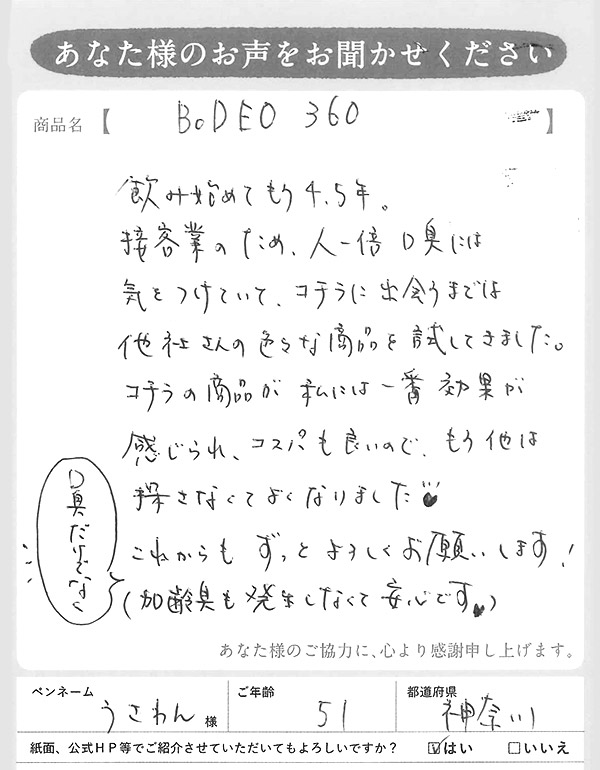 あなた様のお声をお聞かせください
商品名【 BoDEO 360 】
飲み始めてもう4.5年。
接客業のため、人一倍口臭には
気をつけていて、コチラに出会うまでは
他社さんの色々な商品を試してきました。
コチラの商品が私には一番効果が
感じられ、コスパも良いので、もう他は
探さなくてよくなりました
これからもずっとよろしくお願いします!
口臭だけでなく
(加齢臭も発生しなくて安心です)
あなた様のご協力に、心より感謝申し上げます。
ペンネーム うさわん 様 ご年齢 51 都道府県 神奈川
紙面、公式HP等でご紹介させていただいてもよろしいですか? ☑はい □いいえ